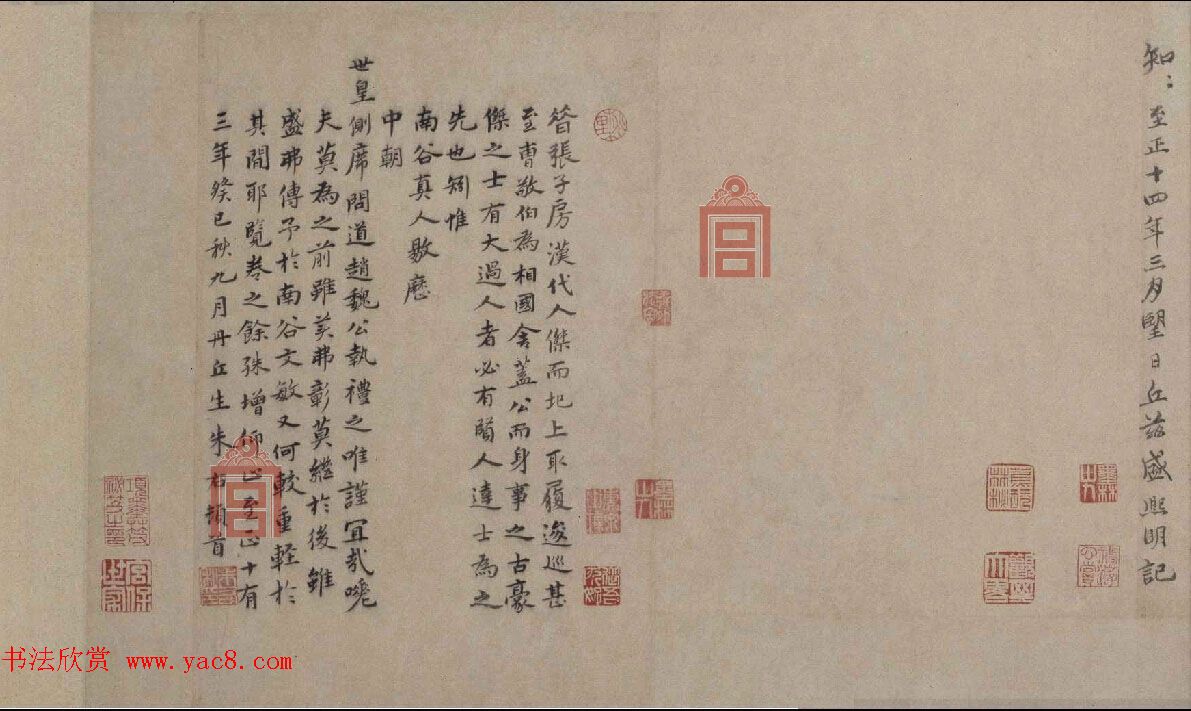 知：至正十四年三月朢日丘兹盛熙明記
昝張子房漢代人傑而圯上取履逡巡甚
至曹敬伯為相國舍蓋公而身事之古豪
傑之士有大過人者必有賢人達士為之
先也矧惟
南谷真人敭歷
中朝
世皇側席問道趙魏公執禮之唯謹宜哉噫
夫莫為之前雖美弗彰莫繼於後雖
盛弗傳予於南谷文敏又何較重軽於
其間耶覽卷之餘殊增仰止至正十有
三年癸巳秋九月丹丘生朱右頓首
宮保世家
书法欣赏 www.yac8.com